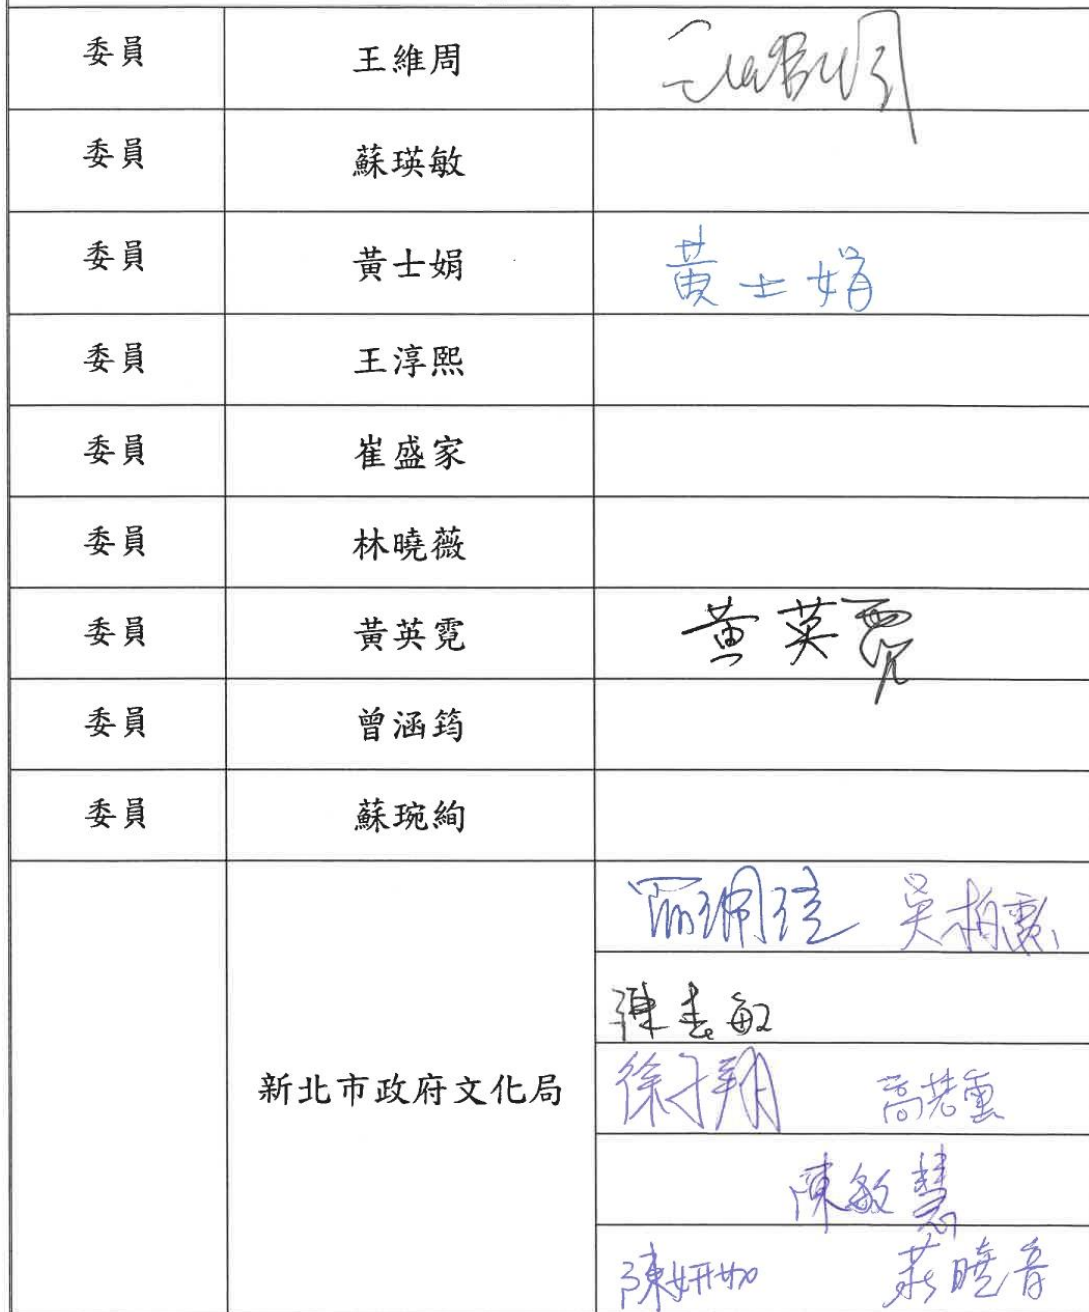 委員 王維周 王維周
委員 蘇瑛敏
委員 黃士娟 黃士娟
委員 王淳熙
委員 崔盛家
委員 林曉薇
委員 黃英霓 黃英霓
委員 曾涵筠
委員 蘇琬絢
新北市政府文化局
羅珮瑄 吳柏勳
陳春敏
徐子翔 高若雲
陳敏慧
陳妍如 莊曉音